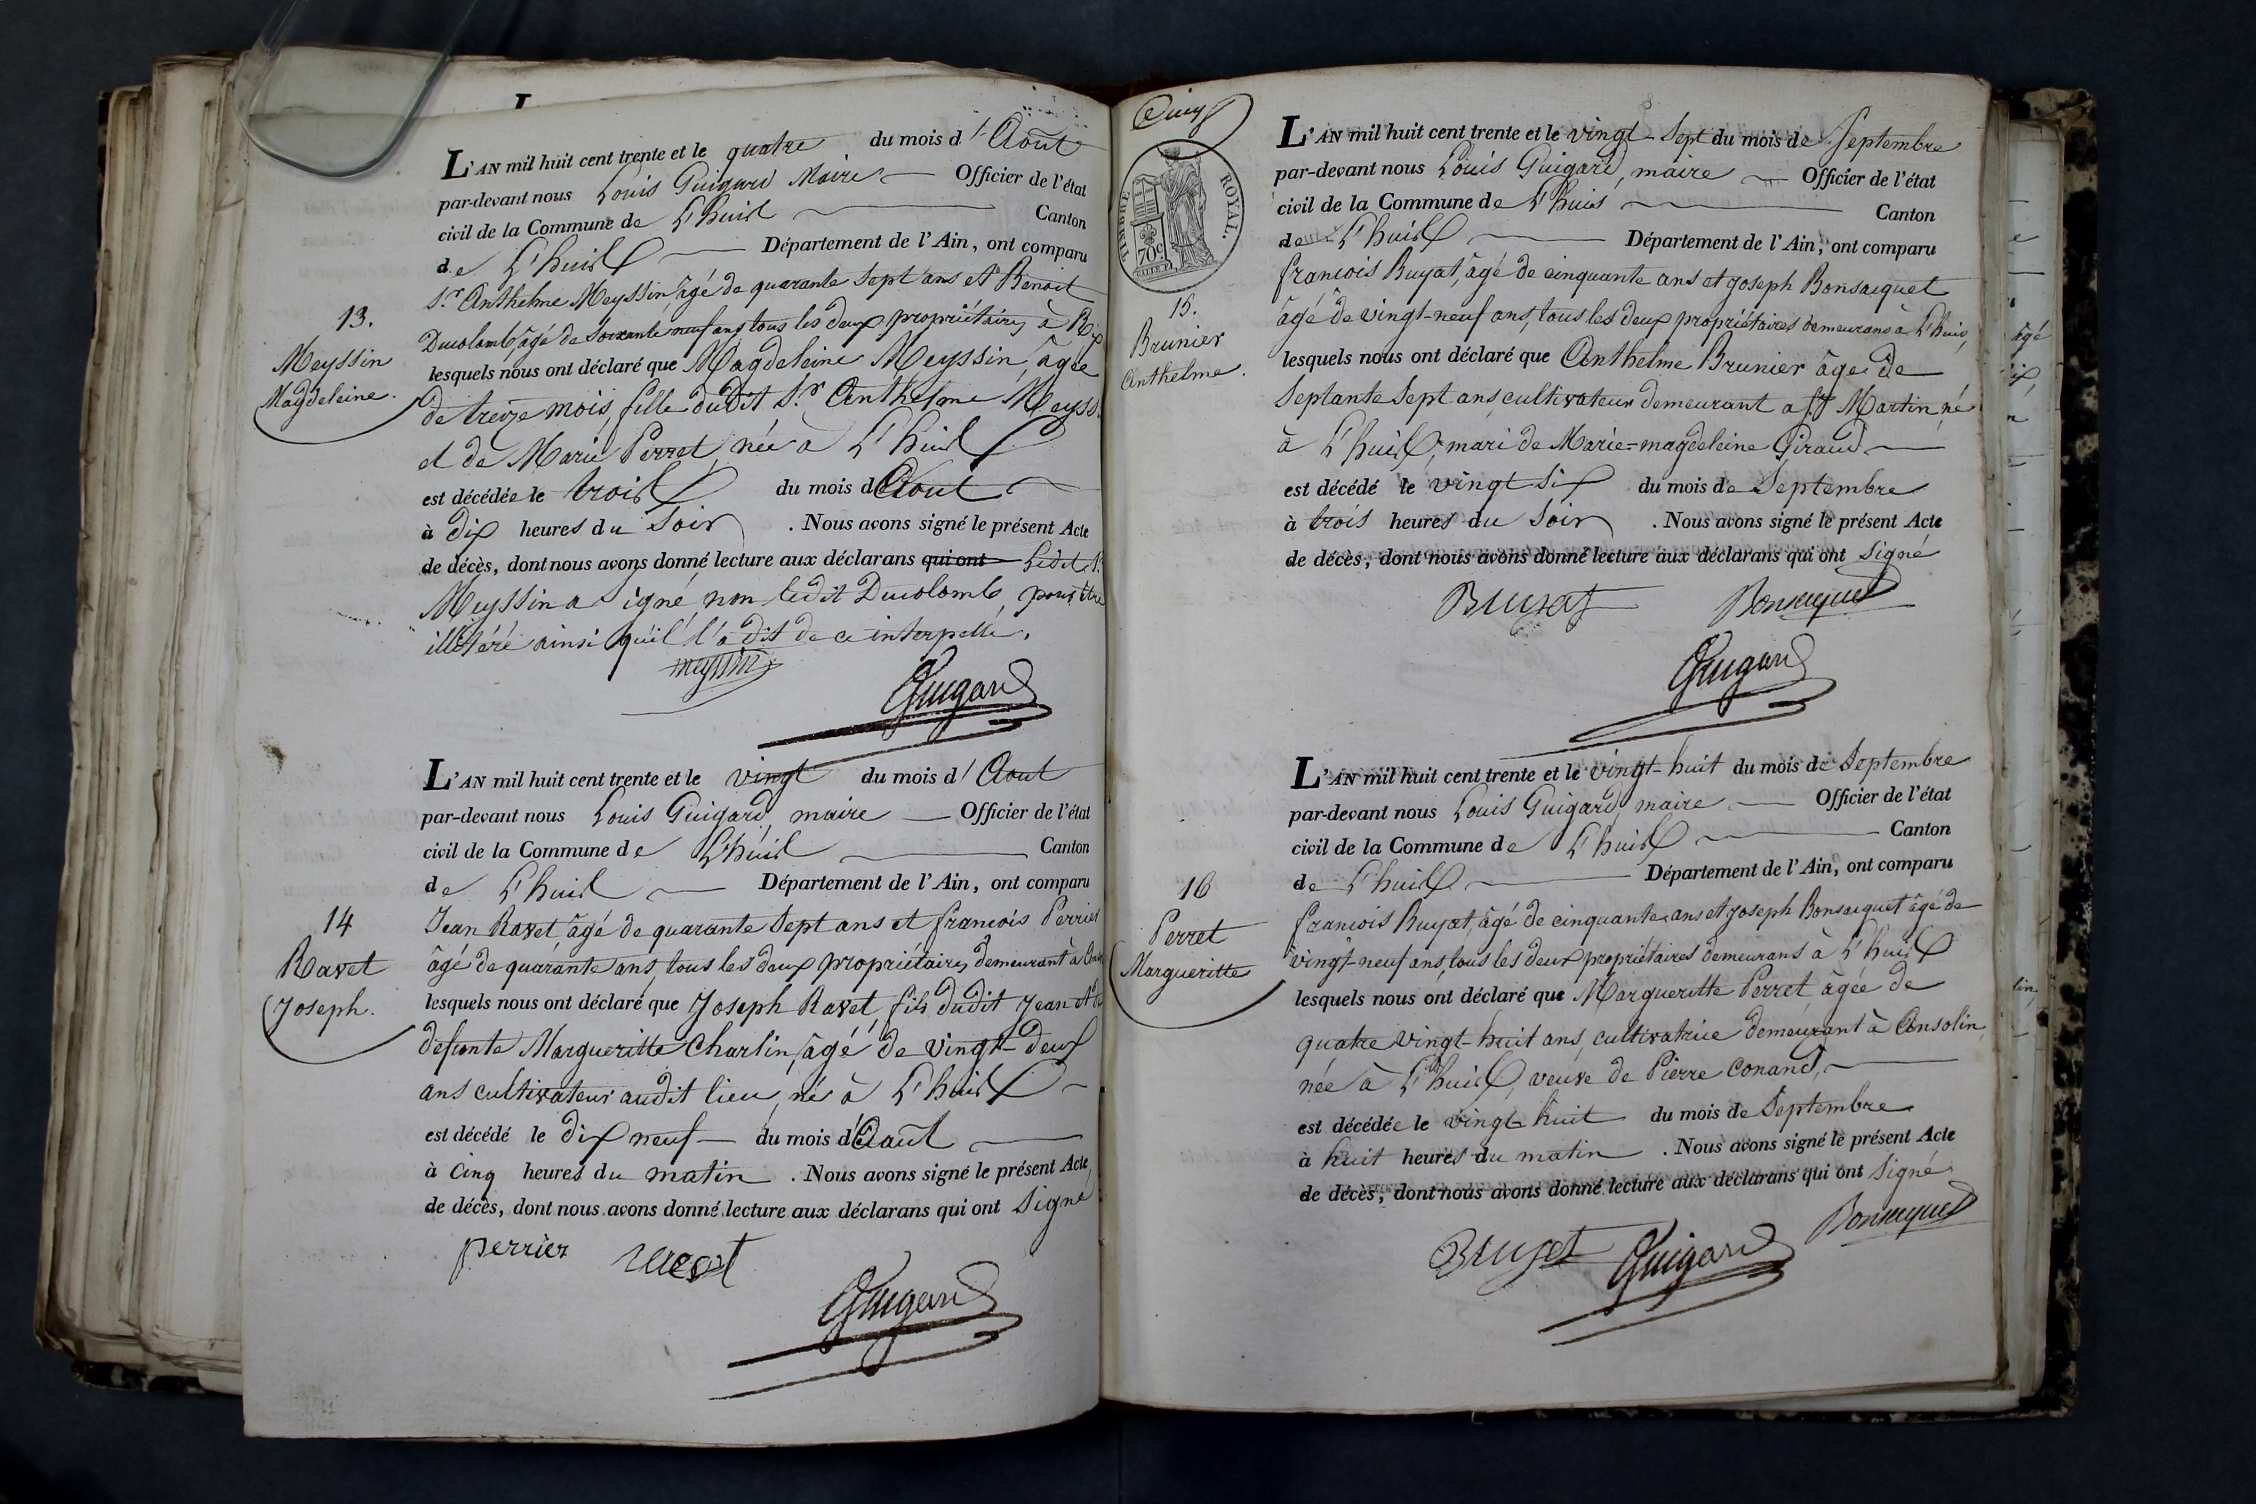 L'AN mil huit cent trente et le quatre du mois d'Aout
par-devant nous Louis Guigard Maire Officier de l'état
civil de la Commune de L'huis Canton
de L'huis Département de l'Ain, ont comparu
Sr. Anthelme Meyssin, âgé de quarante Sept ans et Benoit
Ducolomb, âgé de Soixante neuf ans, tous les deux propriétaires à
lesquels nous ont déclaré que Magdeleine Meyssin, âgée
de treize mois, fille dudit Sr. Anthelme Meyss
et de Marie Perret, née à L'huis
est décédée le trois du mois d'Aout
à dix heures du Soir. Nous avons signé le présent Acte
de décès, dont nous avons donné lecture aux déclarans qui ont Ledit Sr
Meyssin a signé, non ledit Ducolomb, pour être
illétéré ainsi qu'il l'a dit de ce interpellé.
13.
Meyssin
Magdeleine.
meyssin
Guigard
L'AN mil huit cent trente et le vingt du mois d'Aout
par-devant nous Louis Guigard, maire Officier de l'état
civil de la Commune de L'huis Canton
de L'huis Département de l'Ain, ont comparu
Jean Ravet, âgé de quarante Sept ans et francois Perrier
âgé de quarante ans, tous les deux propriétaires, demeurant à
lesquels nous ont déclaré que Joseph Ravet, fils dudit Jean et de
defunte Margueritte Charlin, âgé de vingt-deux
ans cultivateur audit lieu, né à L'huis
est décédé le dix neuf du mois d'Aout
à Cinq heures du matin. Nous avons signé le présent Acte
de décès, dont nous avons donné lecture aux déclarans qui ont Signé
14
Ravet
Joseph.
perrier ravet
Guigard
TIMBRE ROYAL.
70c.
L'AN mil huit cent trente et le vingt-Sept du mois de Septembre
par-devant nous Louis Guigard, maire Officier de l'état
civil de la Commune de L'huis Canton
de L'huis Département de l'Ain, ont comparu
francois Buyat, âgé de cinquante ans et joseph Bonsacquet
âgé de vingt-neuf ans, tous les deux propriétaires demeurans à L'huis,
lesquels nous ont déclaré que Anthelme Brunier âgé de
Septante Sept ans, cultivateur demeurant a St Martin, né
à L'huis, mari de Marie=magdeleine Giraud
est décédé le vingt Six du mois de Septembre
à trois heures du Soir. Nous avons signé le présent Acte
de décès, dont nous avons donné lecture aux déclarans qui ont Signé
15.
Brunier
Anthelme.
Buyat Bonsacquet
Guigard
L'AN mil huit cent trente et le vingt-huit du mois de Septembre
par-devant nous Louis Guigard, maire Officier de l'état
civil de la Commune de L'huis Canton
de L'huis Département de l'Ain, ont comparu
francois Buyat, âgé de cinquante ans et joseph Bonsacquet âgé de
vingt-neuf ans, tous les deux propriétaires demeurans à L'huis
lesquels nous ont déclaré que Margueritte Perret, âgée de
quatre vingt-huit ans, cultivatrice demeurant à Ansolin,
née à L'huis, veuve de Pierre Conand,
est décédée le vingt huit du mois de Septembre
à huit heures du matin. Nous avons signé le présent Acte
de décès, dont nous avons donné lecture aux déclarans qui ont Signé
16
Perret
Margueritte
Buyat Guigard Bonsacquet